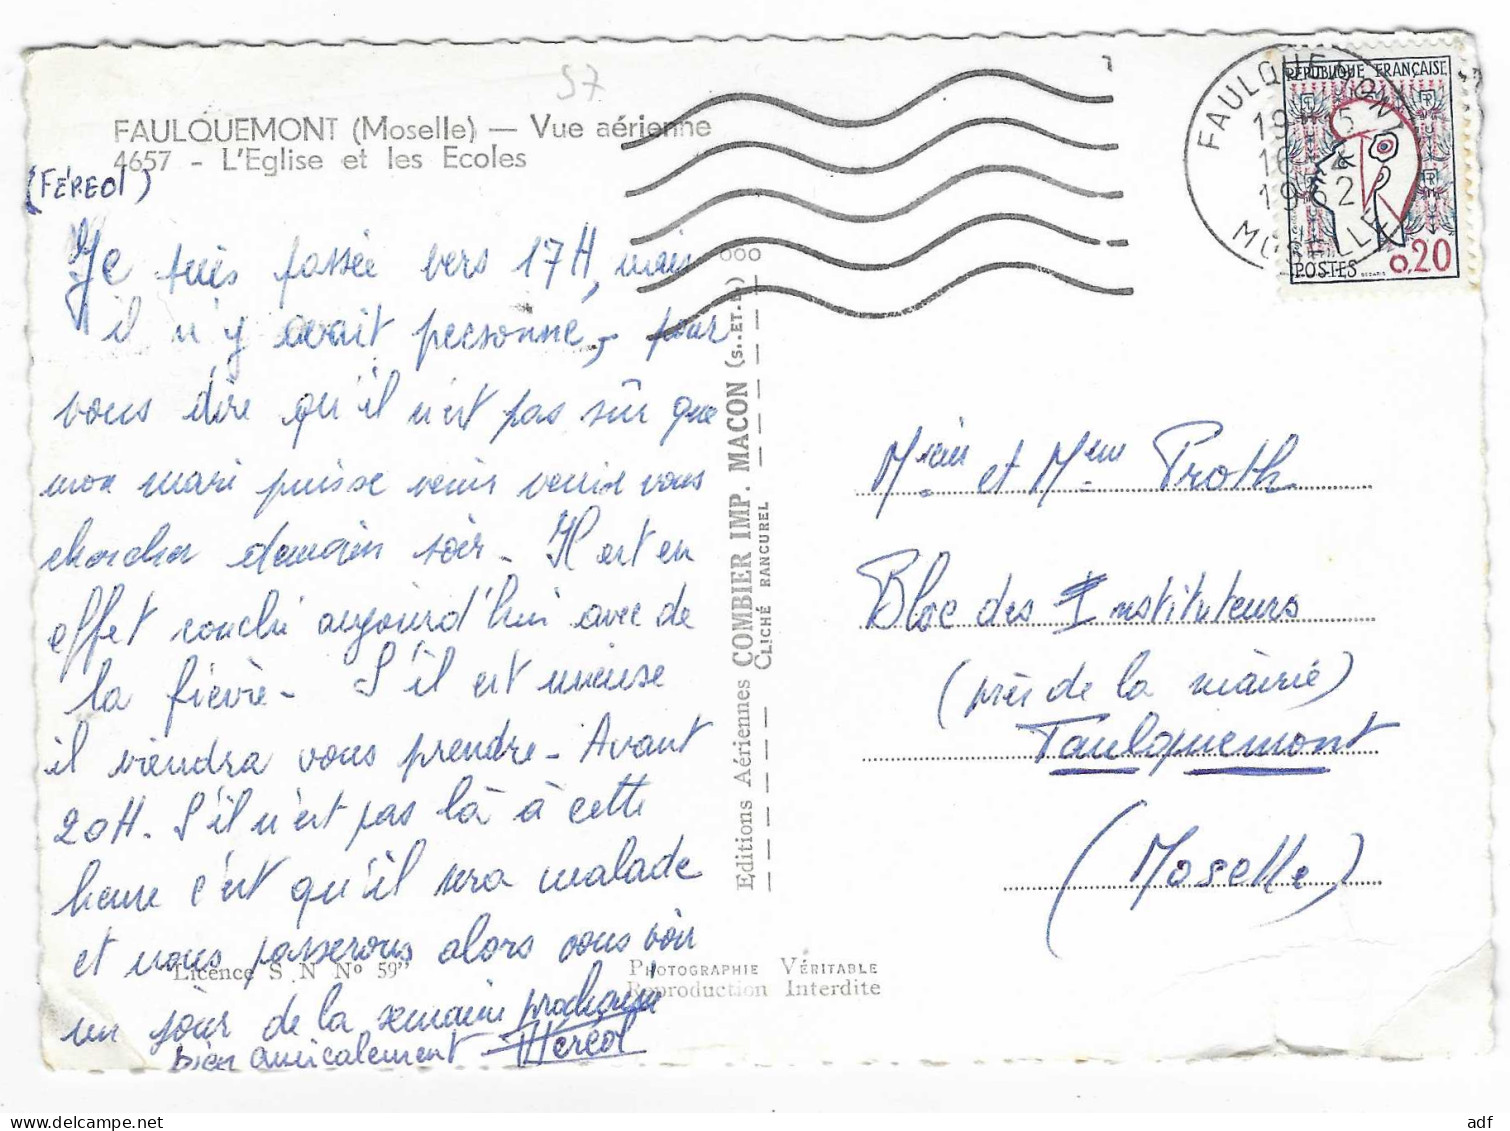 57
FAULQUEMONT (Moselle) — Vue aérienne
4657 - L'Eglise et les Ecoles
(FÉREOL)
Je suis passée vers 17H, mais
il n'y avait personne, pour
vous dire qu'il n'est pas sûr que
mon mari puisse venir vous
chercher demain soir - Il est en
effet couché aujourd'hui avec de
la fièvre - S'il est mieux
il viendra vous prendre - Avant
20H. S'il n'est pas là à cette
heure c'est qu'il sera malade
et nous passerons alors vous voir
un jour de la semaine prochaine
bien amicalement Féréol
Licence S N N° 59"
Editions Aériennes COMBIER IMP. MACON (S.-ET-L.)
CLICHÉ RANCUREL
PHOTOGRAPHIE VÉRITABLE
Reproduction Interdite
FAULQUEMONT
1962
MOSELLE
REPUBLIQUE FRANÇAISE
POSTES 0,20
Mr et Mme Proth
Bloc des Instituteurs
(près de la mairie)
Faulquemont
(Moselle)
adf